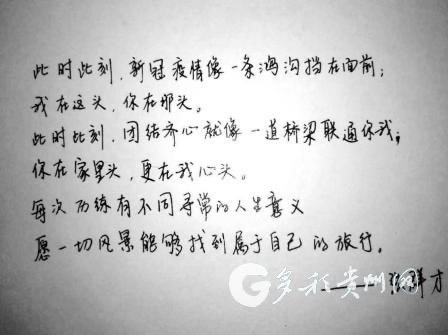 此时此刻，新冠疫情像一条鸿沟挡在面前；
我在这头，你在那头。
此时此刻，团结齐心就像一道桥梁联通你我，
你在家里头，更在我心头。
每次历练有不同寻常的人生意义
愿一切风景能够找到属于自己的旅行。
多彩贵州网
才